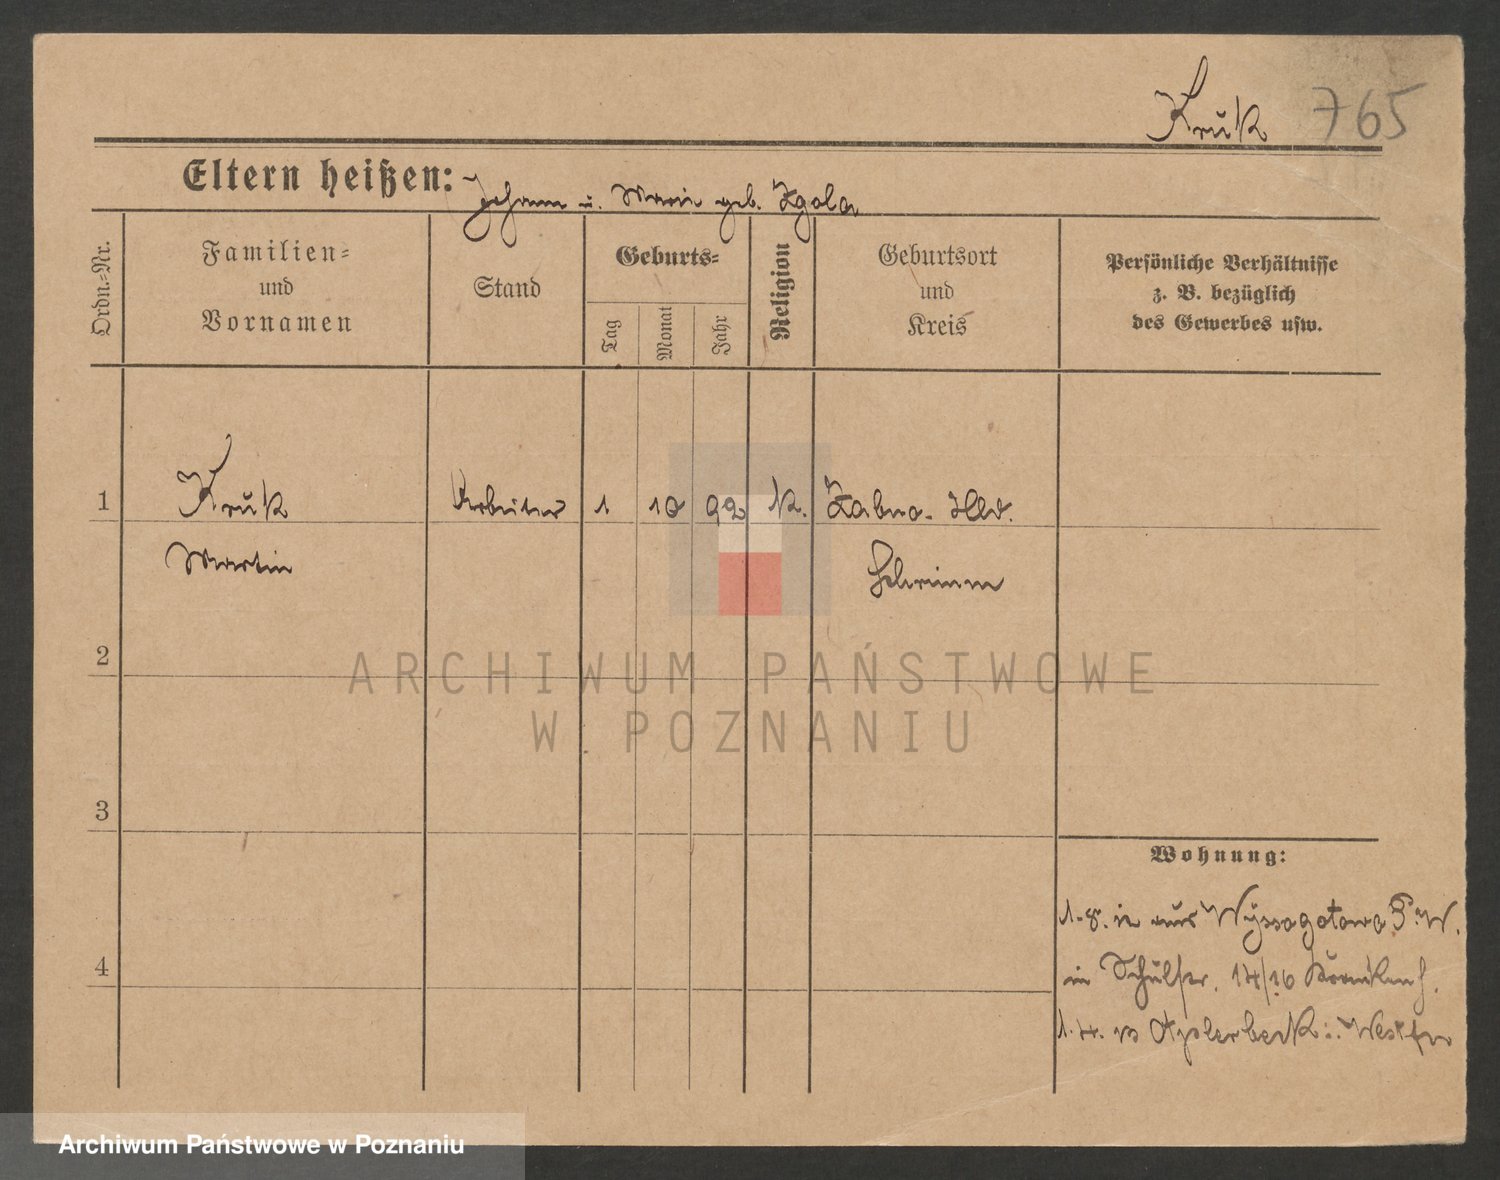 Kruk 765
Eltern heißen: Johann u. Marie geb. Zgola
Ordn.-Nr.
Familien-
und
Vornamen
Stand
Geburts-
Tag
Monat
Jahr
Religion
Geburtsort
und
Kreis
Persönliche Verhältnisse
z. B. bezüglich
des Gewerbes usw.
1 Kruk Arbeiter 1 10 92 K. Zabno.
Martin Schrimm
2
3
4
Wohnung:
aus Wyssogotowo P. W.
in Schulstr. 14/16 Krankenh.
Aplerbeck i. Westf
ARCHIWUM PAŃSTWOWE
W POZNANIU
Archiwum Państwowe w Poznaniu